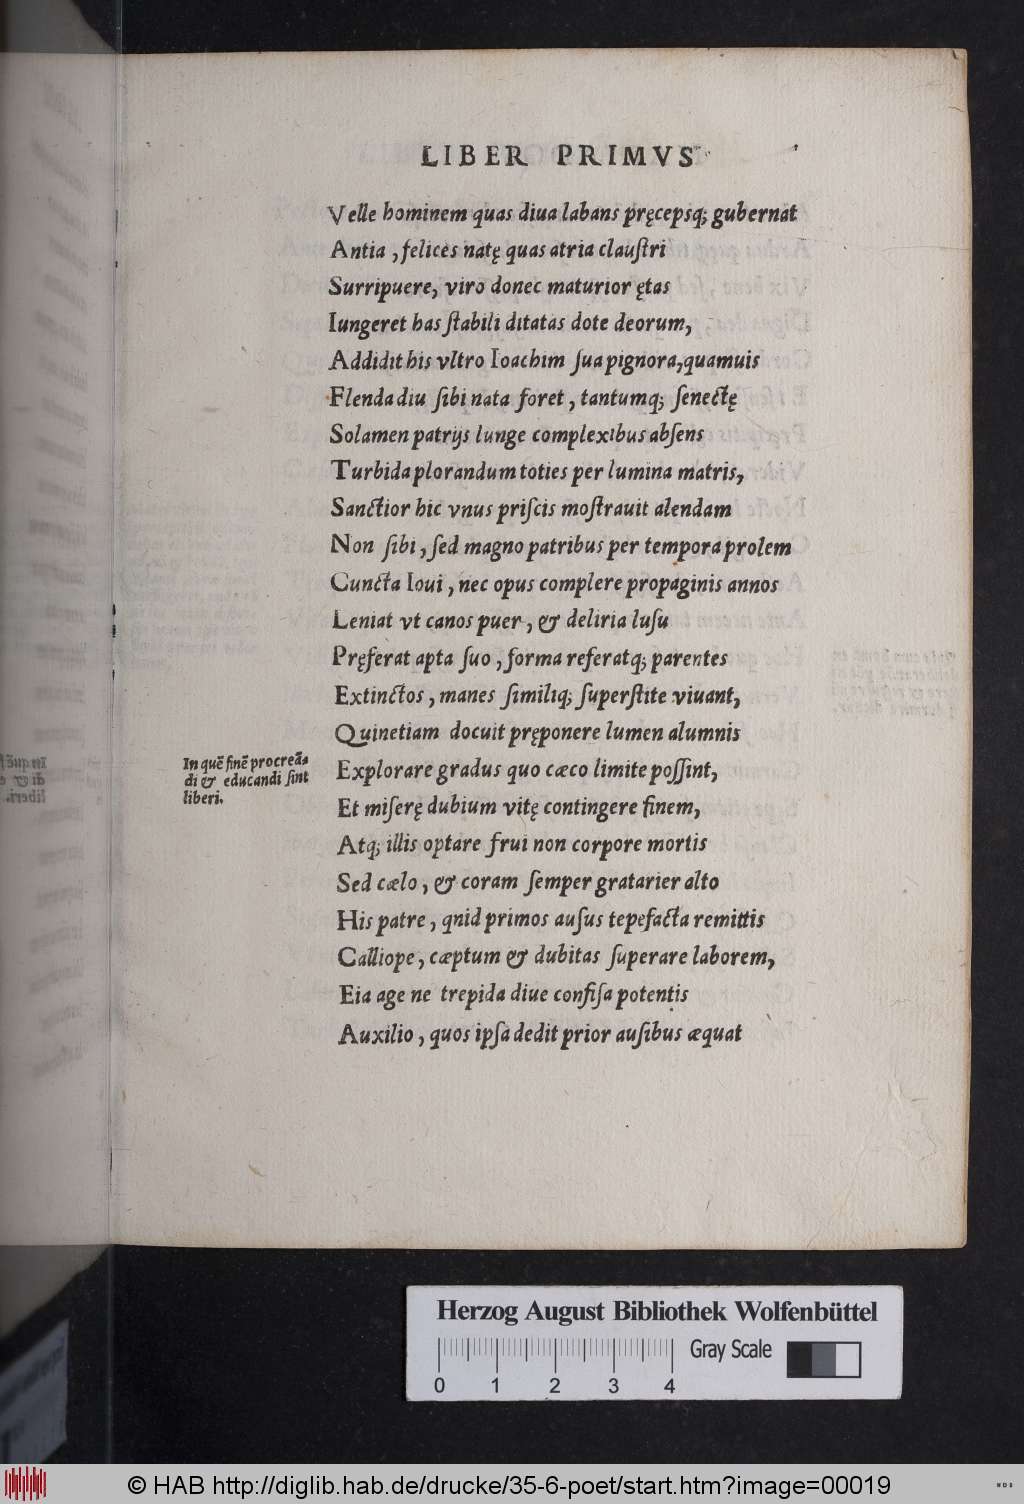 LIBER PRIMVS
Velle hominem quas diua labans pręcepsq; gubernat
Antia, felices natę quas atria clauſtri
Surripuere, viro donec maturior ętas
Iungeret has ſtabili ditatas dote deorum,
Addidit his vltro Ioachim ſua pignora, quamuis
Flenda diu ſibi nata foret, tantumq; ſenectę
Solamen patrijs lunge complexibus abſens
Turbida plorandum toties per lumina matris,
Sanctior hic vnus priſcis moſtrauit alendam
Non ſibi, ſed magno patribus per tempora prolem
Cuncta Ioui, nec opus complere propaginis annos
Leniat vt canos puer, & deliria luſu
Pręferat apta ſuo, forma referatq; parentes
Extinctos, manes ſimiliq; ſuperſtite viuant,
Quinetiam docuit pręponere lumen alumnis
In quē finē procreā-
di & educandi ſint
liberi.
Explorare gradus quo cæco limite poſſint,
Et miſerę dubium vitę contingere finem,
Atq; illis optare frui non corpore mortis
Sed cælo, & coram ſemper gratarier alto
His patre, qnid primos auſus tepefacta remittis
Calliope, cæptum & dubitas ſuperare laborem,
Eia age ne trepida diue confiſa potentis
Auxilio, quos ipſa dedit prior auſibus æquat
Herzog August Bibliothek Wolfenbüttel
Gray Scale
0 1 2 3 4
© HAB http://diglib.hab.de/drucke/35-6-poet/start.htm?image=00019